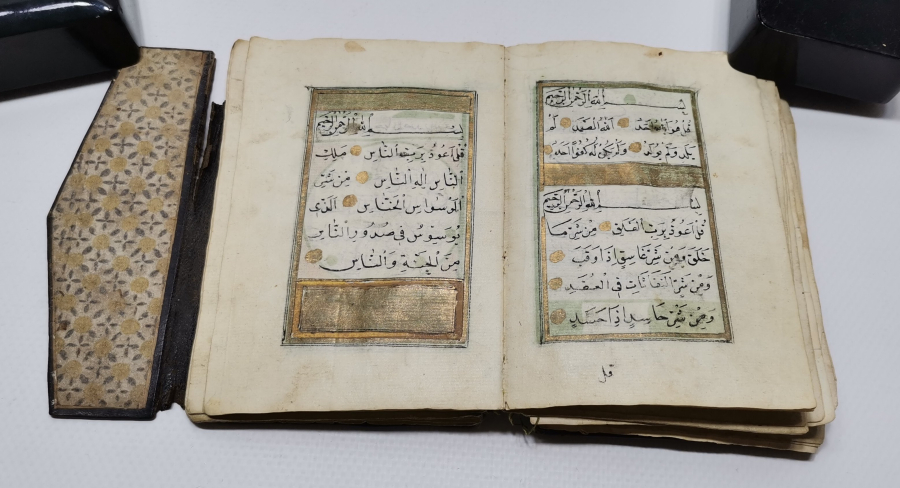 بسم الله الرحمن الرحيم
قل هو الله احد الله الصمد لم
يلد ولم يولد ولم يكن له كفوا احد
بسم الله الرحمن الرحيم
قل اعوذ برب الفلق من شر ما
خلق ومن شر غاسق اذا وقب
ومن شر النفاثات في العقد
ومن شر حاسد اذا حسد
قل
بسم الله الرحمن الرحيم
قل اعوذ برب الناس ملك
الناس اله الناس من شر
الوسواس الخناس الذى
يوسوس فى صدور الناس
من الجنة والناس